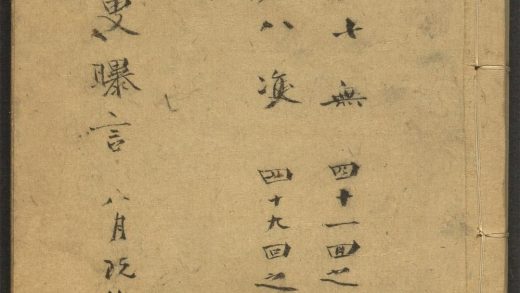 無 四十一回之
八 四十九回之
叟曝言 八月